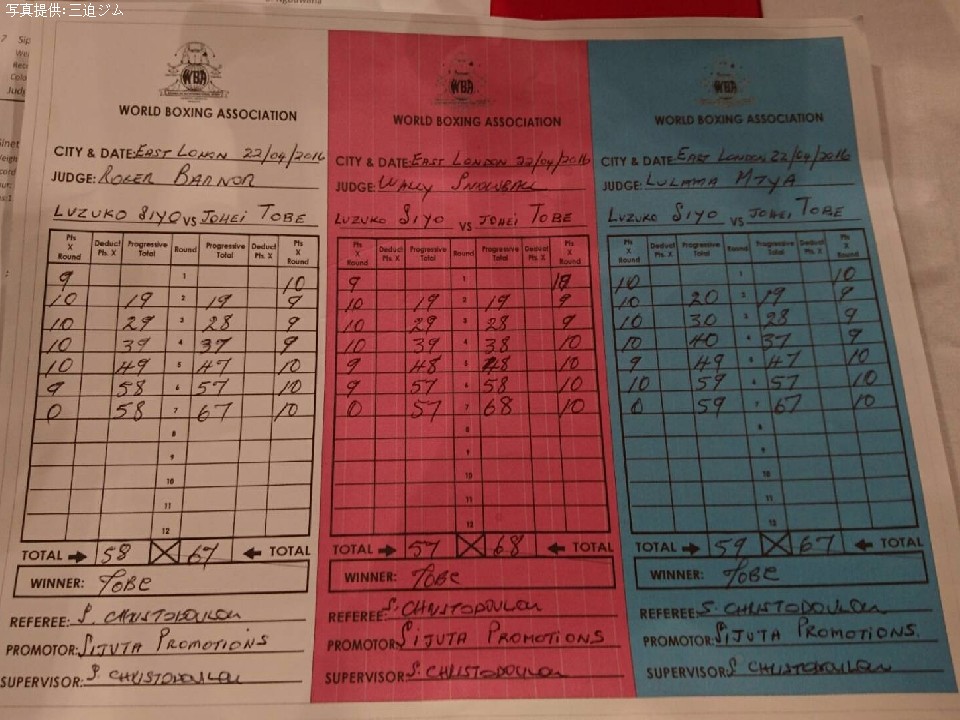 写真提供:三迫ジム
7 Sip
Wei
Colo
Judg
WBA
WORLD BOXING ASSOCIATION
CITY & DATE: EAST LONON 22/04/2016
JUDGE: ROGER BARNOR
LUZUKO SIYO VS JOHEI TOBE
Pts X Round Deduct Pts. X Progressive Total Round Progressive Total Deduct Pts. X Pts X Round
9 1 10
10 19 2 19 9
10 29 3 28 9
10 39 4 37 9
10 49 5 47 10
9 58 6 57 10
0 58 7 67 10
8
9
10
11
12
TOTAL 58 67 TOTAL
WINNER: TOBE
REFEREE: S. CHRISTODOULOU
PROMOTOR: SIJUTA PROMOTIONS
SUPERVISOR: S. CHRISTODOULOU
WBA
WORLD BOXING ASSOCIATION
CITY & DATE: EAST LONDON 22/04/2016
JUDGE: WALLY SNOWBALL
LUZUKO SIYO VS JOHEI TOBE
Pts X Round Deduct Pts. X Progressive Total Round Progressive Total Deduct Pts. X Pts X Round
9 1 10
10 19 2 19 9
10 29 3 28 9
10 39 4 38 10
9 48 5 48 10
9 57 6 58 10
0 57 7 68 10
8
9
10
11
12
TOTAL 57 68 TOTAL
WINNER: TOBE
REFEREE: S. CHRISTODOULOU
PROMOTOR: SIJUTA PROMOTIONS
SUPERVISOR: S. CHRISTODOULOU
WBA
WORLD BOXING ASSOCIATION
CITY & DATE: EAST LONDON 22/04/2016
JUDGE: LULAMA MTYA
LUZUKO SIYO VS JOHEI TOBE
Pts X Round Deduct Pts. X Progressive Total Round Progressive Total Deduct Pts. X Pts X Round
10 1 10
10 20 2 19 9
10 30 3 28 9
10 40 4 37 9
9 49 5 47 10
10 59 6 57 10
0 59 7 67 10
8
9
10
11
12
TOTAL 59 67 TOTAL
WINNER: TOBE
REFEREE: S. CHRISTODOULOU
PROMOTOR: SIJUTA PROMOTIONS.
SUPERVISOR: S. CHRISTODOULOU